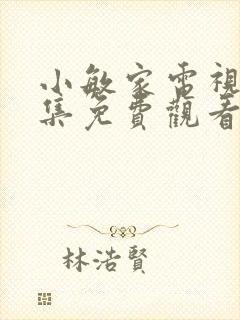 小敏家電視
集免費觀看
林浩賢